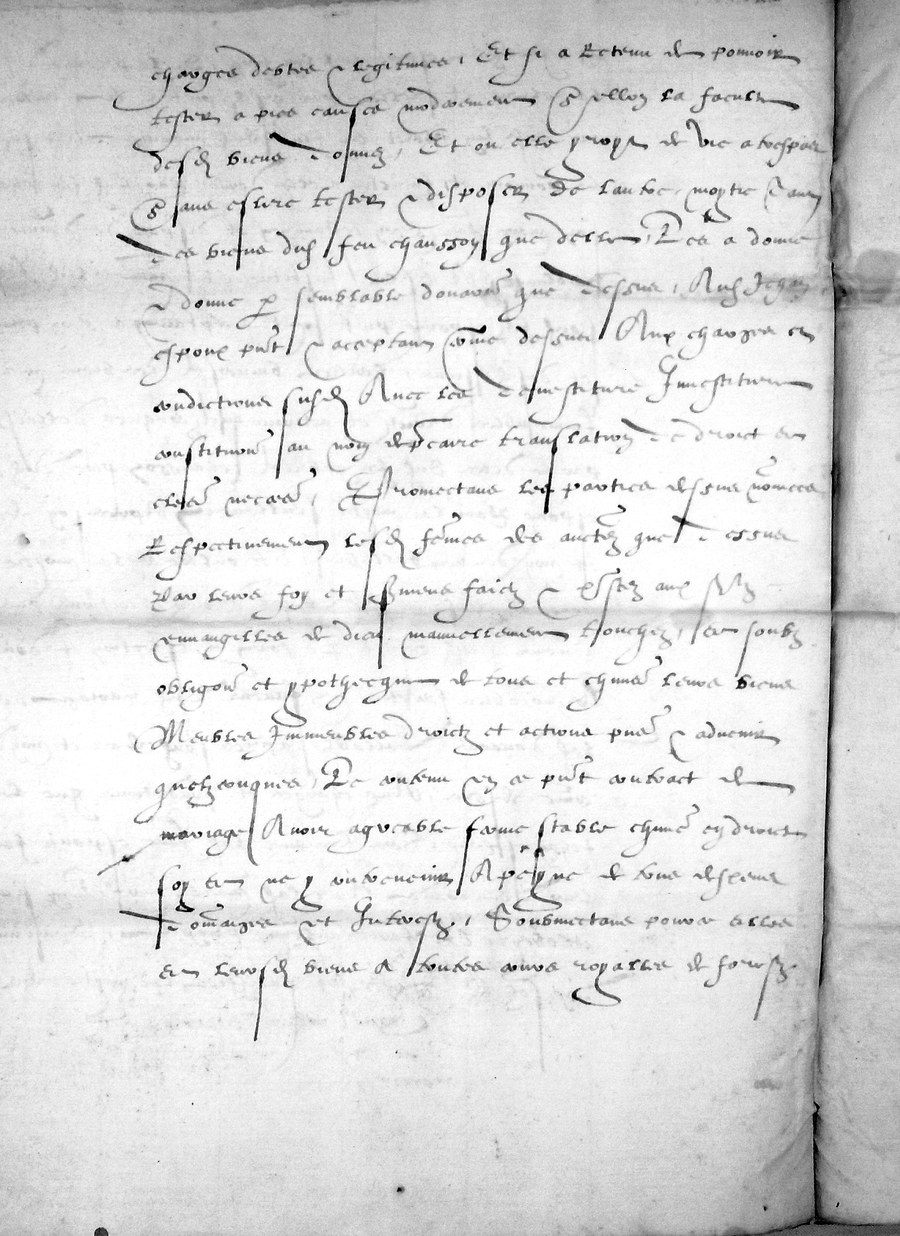 charges debtes & legitimes, Et si a Retenu de pouvoir
tester a pies causes moderement Sellon la faculte
desd biens donnez, Et ou elle yroyt de vie a trespas
Sans eslire tester & disposer de lautre moytie
des biens dud feu chausson que delle, Des a donne
& donne par semblable donaōn que dessus, Aud
espoux pnt & acceptant cōme dessus Aux charges et
condictions susd Avec les devestiture Investiture
constitutiōn au nom de pcaire translation de droict et
cleres necres, Promectans les parties dessus nōmees
Respectivement lesd fēmes des auctez que dessus
Par leurs foy et Smens faictz & pstez aux
euvangilles de dieu manuellement touchez, et soubz
obligōn et ypothecque de tous et chūns leurs biens
Meubles Immeubles droictz et actions pns & advenir
quelzconques, Le contenu en ce pnt contract de
mariage Avoir agreable ferme stable chūn en droict
soy et ne y contrevenir A peyne de tous despens
domaiges et Interestz, Soubmectans pource elles
et leursd biens A toutes cours royalles de forestz